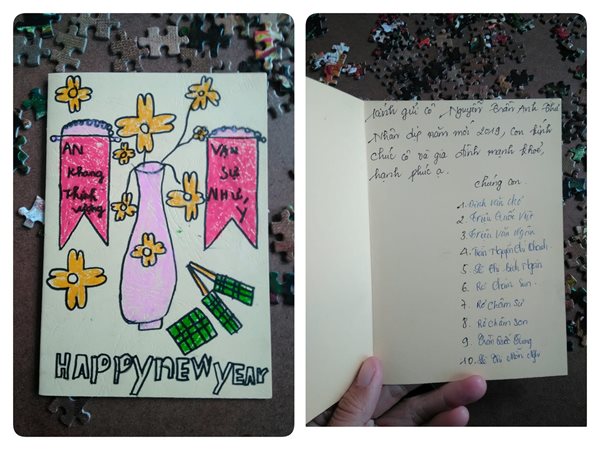 AN
Khang
Thịnh
vượng
VẠN
SỰ
NHƯ
Ý
HAPPY NEW YEAR
Kính gửi cô Nguyễn Trần Anh
Nhân dịp năm mới 2019, con kính
chúc cô và gia đình mạnh khoẻ,
hạnh phúc ạ.
chúng con
1. Đinh Văn
2. Triệu Quốc Việt
3. Triệu Văn Ngân
4. Trần Nguyễn Chi Khanh
5. Lê Thị Bích Ngân
6. Rơ Châm Sun
7. Rơ Châm Sư
8. Rơ Châm Sơn
9. Quốc
10. Lê Thị